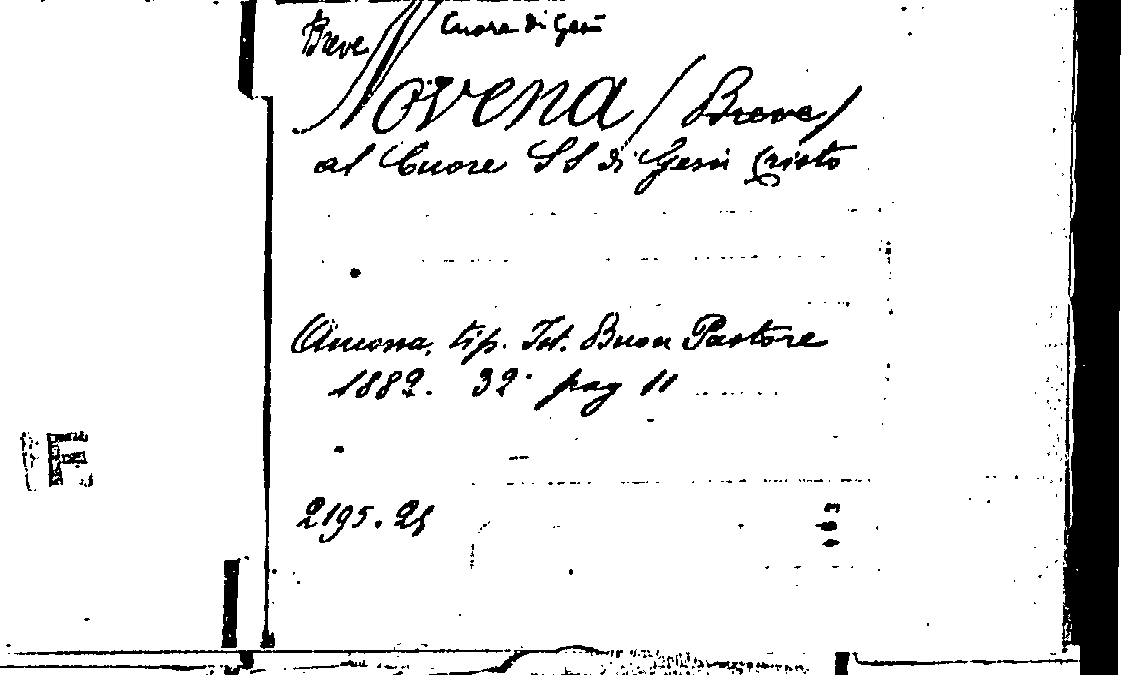 Breve Cuore di Gesù
Novena (Breve)
al Cuore SS di Gesù Cristo
Ancona, tip. Ist. Buon Pastore
1882. 32° pag 11
2195.25